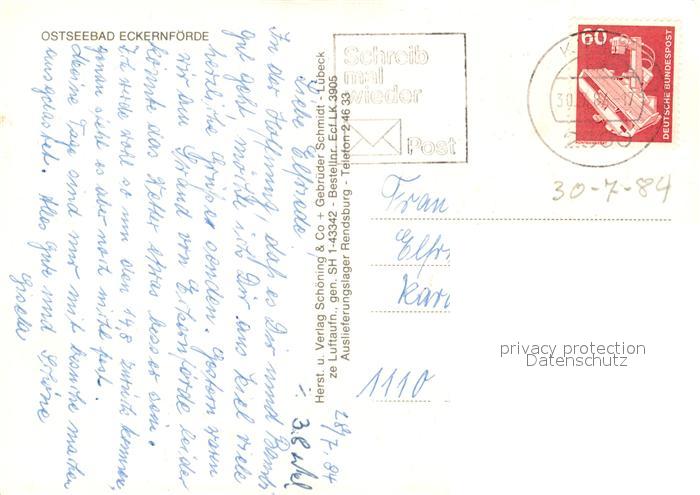 OSTSEEBAD ECKERNFÖRDE
28/7.84
Liebe Elfriede
In der Hoffnung, daß es Dir und
gut geht, möchte ich Dir aus Kiel viele
herzliche Grüße senden. Gestern waren
wir am Strand von Eckernförde leider
könnte das Wetter etwas besser sein.
Ich werde wohl so um den 14,8 zurück kommen,
genau steht es aber noch nicht fest.
Meine Tage sind nur mit Besuche machen
ausgelastet. Alles Gute und Schöne
Gisela
Herst. u. Verlag Schöning & Co + Gebrüder Schmidt - Lübeck
ze Luftaufn. gen. SH 1-43342 - Bestellnr. Ecf LK 3905
Auslieferungslager Rendsburg - Telefon 2 46 33
Schreib
mal
wieder
Post
60
DEUTSCHE BUNDESPOST
30-7-84
Frau
Elfr
Kar
1110
privacy protection
Datenschutz